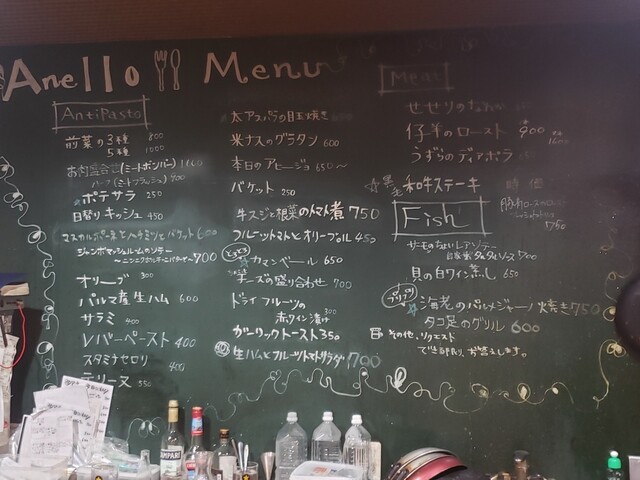 Anello Menu
AntiPasto
前菜の3種 800
5種 1000
お肉盛合せ(ミートボンバー) 1600
ハーフ(ミートフラッシュ) 900
ポテサラ 250
日替りキッシュ 450
マスカルポーネとハチミツとバケット 600
ジャンボマッシュルームのソテー
～ニンニクアンチョビバターで～ 900
オリーブ 300
パルマ産生ハム 600
サラミ 400
レバーペースト 400
スタミナセロリ 400
テリーヌ 550
太アスパラの目玉焼き
米ナスのグラタン 600
本日のアヒージョ 650～
バケット 250
牛スジと根菜のトマト煮 750
フルーツトマトとオリーブoil 450
とろとろ
カマンベール 650
チーズの盛り合わせ 700
ドライフルーツの
赤ワイン漬け 300
ガーリックトースト 350
生ハムとフルーツトマトサラダ 700
Meat
せせりの
仔羊のロースト 900
うずらのディアボラ
黒毛 和牛ステーキ 時価
750
Fish
サーモンのレアソテー
700
貝の白ワイン蒸し 650
プリプリ
海老のパルメジャーノ焼き 750
タコ足のグリル 600
その他、リクエスト
で出来る限り、お答えします。